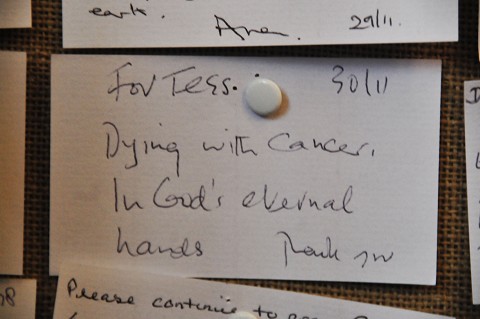 earth.
29/11.
For Tess. 30/11
Dying with Cancer.
In God's eternal
hands Thank you
Please continue to